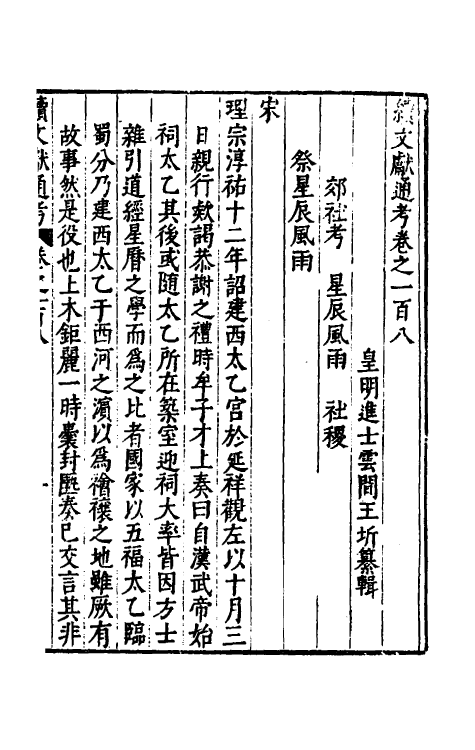 續文獻通考卷之一百八
皇明進士雲間王圻纂輯
郊社考 星辰風雨 社稷
祭星辰風雨
宋
理宗淳祐十二年詔建西太乙宮於延祥觀左以十月三
日親行欵謁恭謝之禮時牟子才上奏曰自漢武帝始
祠太乙其後或隨太乙所在築室迎祠大率皆因方士
雜引道經星曆之學而爲之比者國家以五福太乙臨
蜀分乃建西太乙于西河之濵以爲禬禳之地雖厥有
故事然是役也土木鉅麗一時囊封匭奏已交言其非
續文獻通考 卷之一百八 一